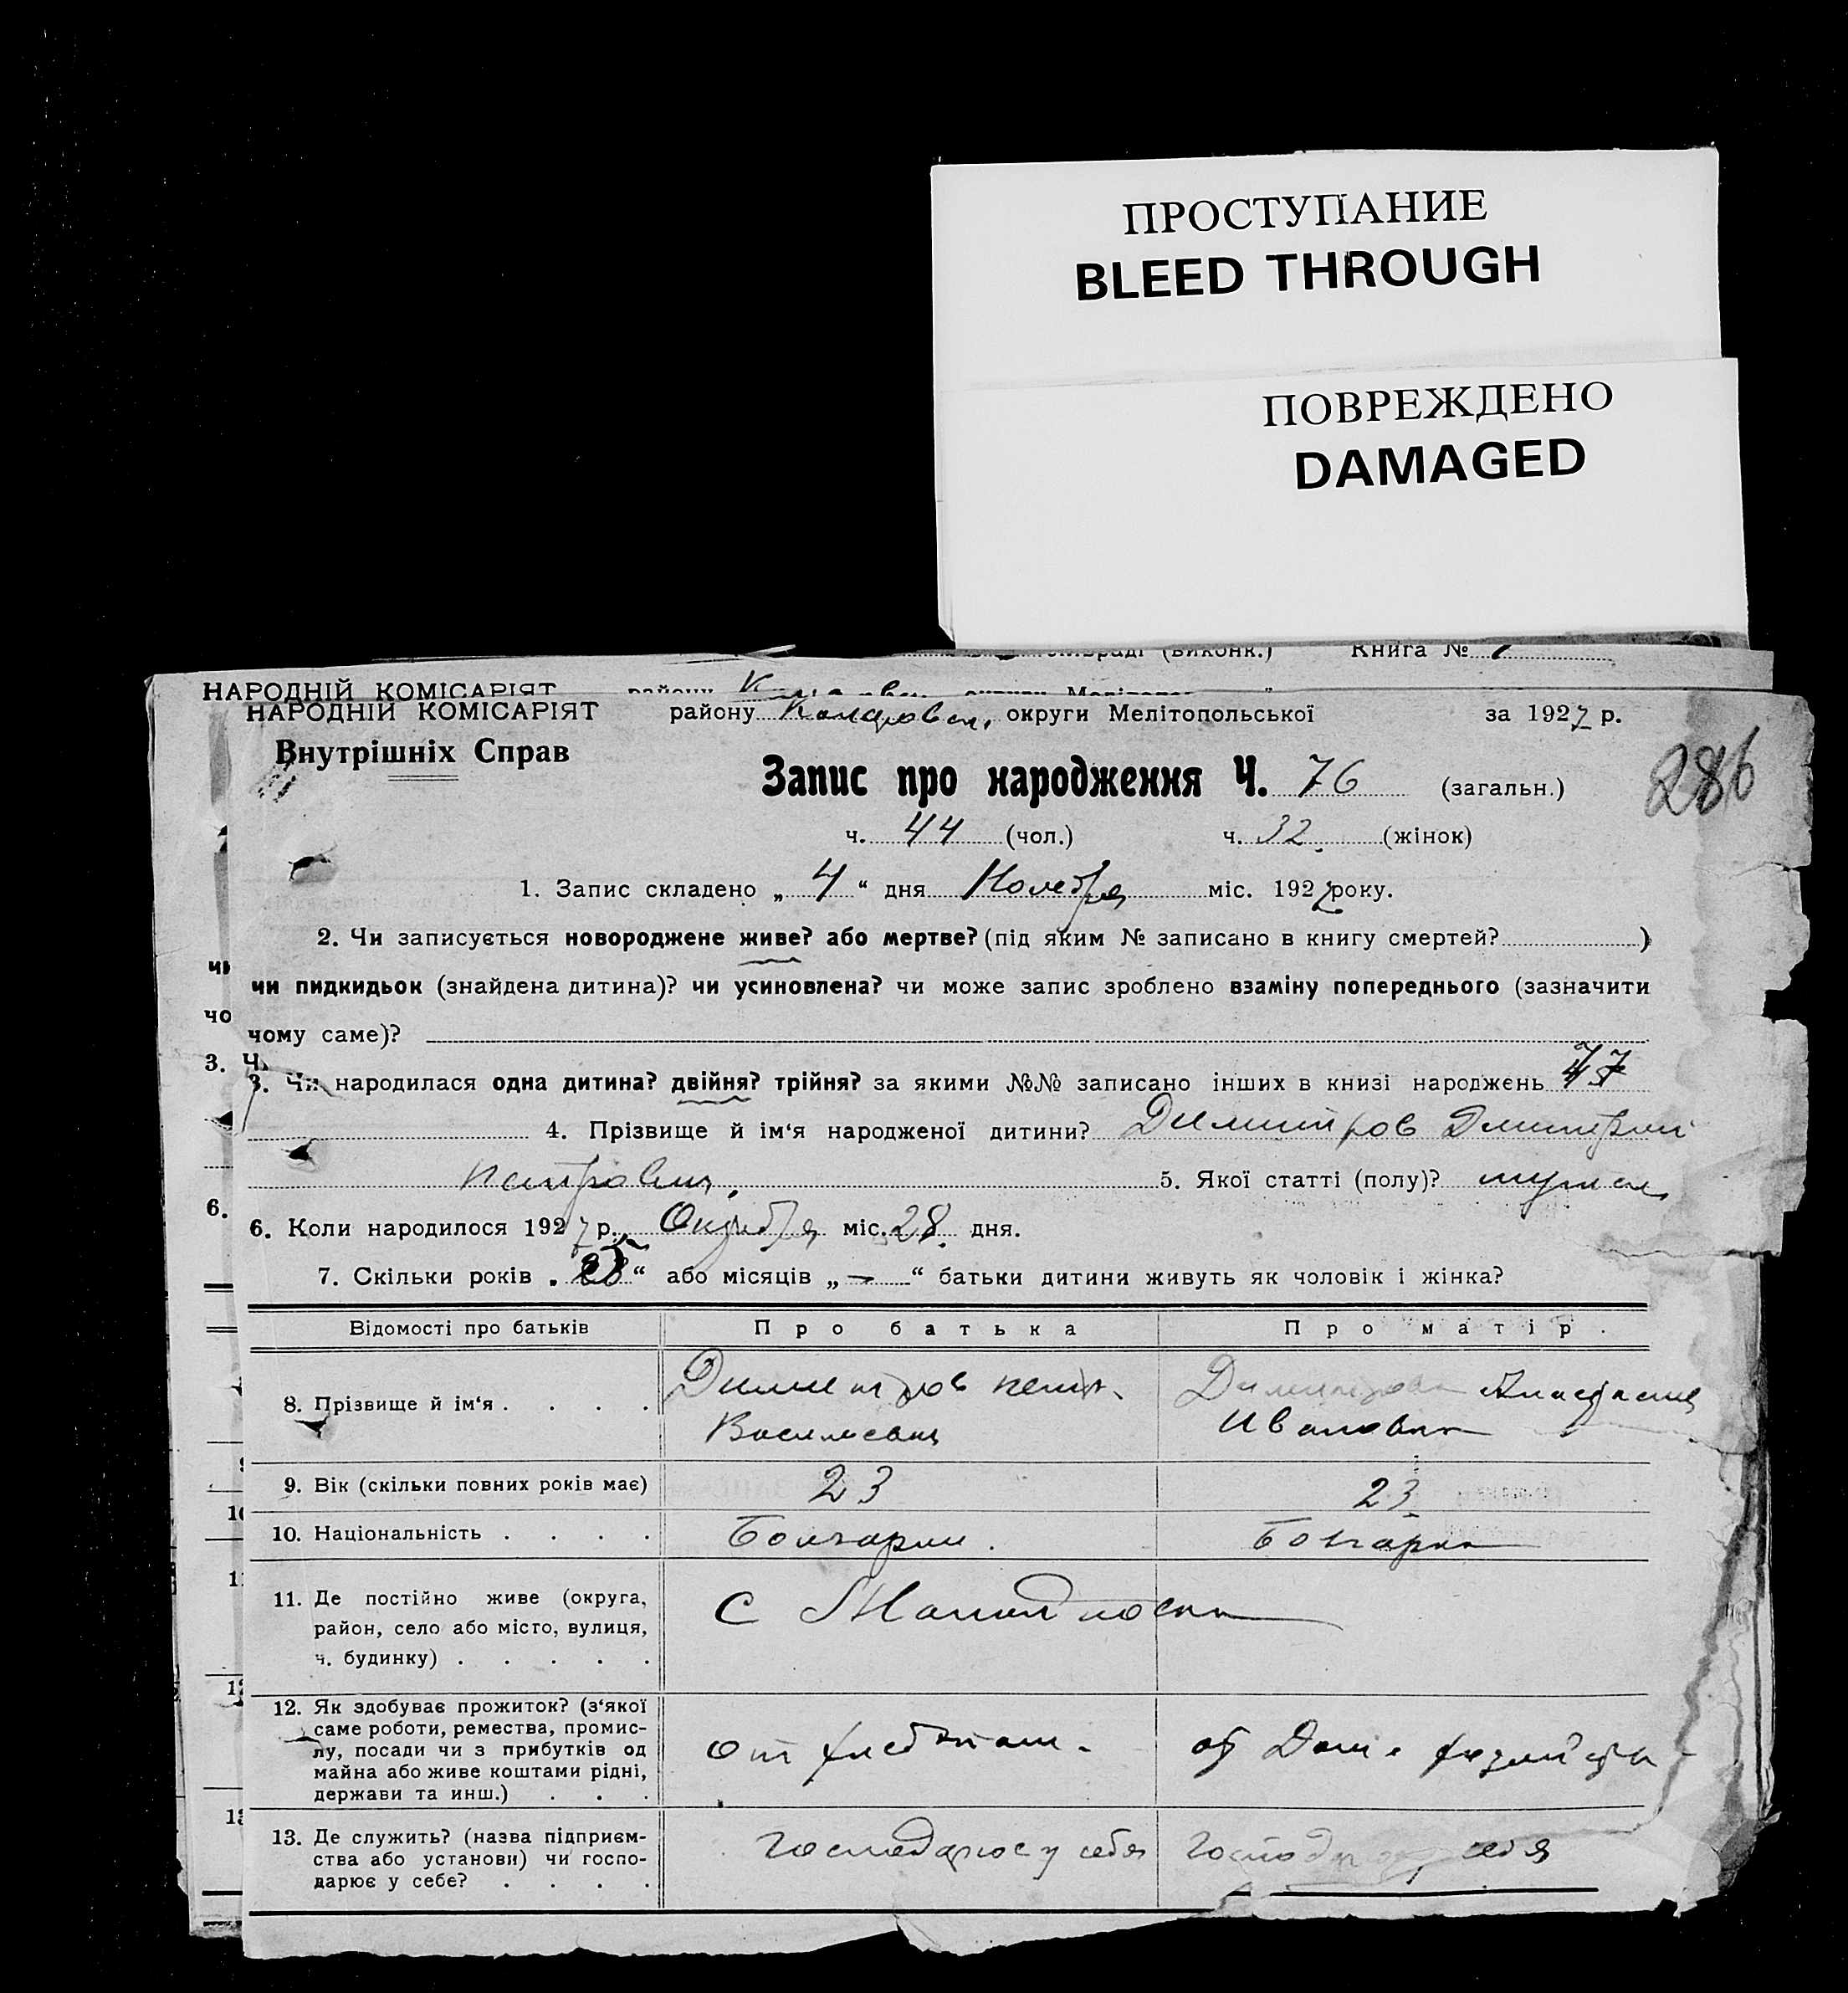 ПРОСТУПАНИЕ
BLEED THROUGH
ПОВРЕЖДЕНО
DAMAGED
(виконк.) Книга №
НАРОДНІЙ КОМІСАРІЯТ району округи
НАРОДНІЙ КОМІСАРІЯТ району округи Мелітопольської за 1927 р.
Внутрішніх Справ
Запис про народження Ч. 76 (загальн.)
286
ч. 44 (чол.) ч. 32 (жінок)
1. Запис складено „ 4 “ дня Ноября міс. 1927 року.
2. Чи записується новороджене живе? або мертве? (під яким № записано в книгу смертей? )
чи
чи пидкидьок (знайдена дитина)? чи усиновлена? чи може запис зроблено взаміну попереднього (зазначити
чо
чому саме)?
3. Ч
3. Чи народилася одна дитина? двійня? трійня? за якими №№ записано інших в книзі народжень
4. Прізвище й ім‘я народженої дитини? Димитров Дмитрий
Петрович. 5. Якої статті (полу)?
6.
6. Коли народилося 1927 р. Октября міс. 28. дня.
7. Скільки років „ “ або місяців „ — “ батьки дитини живуть як чоловік і жінка?
Відомості про батьків Про батька Про матір
8. Прізвище й ім‘я . . . . Димитров Петр Димитрова Анастасия
Васильевич Ивановна
9. Вік (скільки повних років має) 23 23
10. Національність . . . . Болгарин. Болгарка
11. Де постійно живе (округа, с
район, село або місто, вулиця,
ч. будинку) . . . . .
12. Як здобуває прожиток? (з‘якої
саме роботи, ремества, промис-
лу, посади чи з прибутків од от хлебопаш. от Дом.
майна або живе коштами рідні,
держави та инш.) . . .
13. Де служить? (назва підприєм-
ства або установи) чи госпо- у себя себя
дарює у себе? . . . .